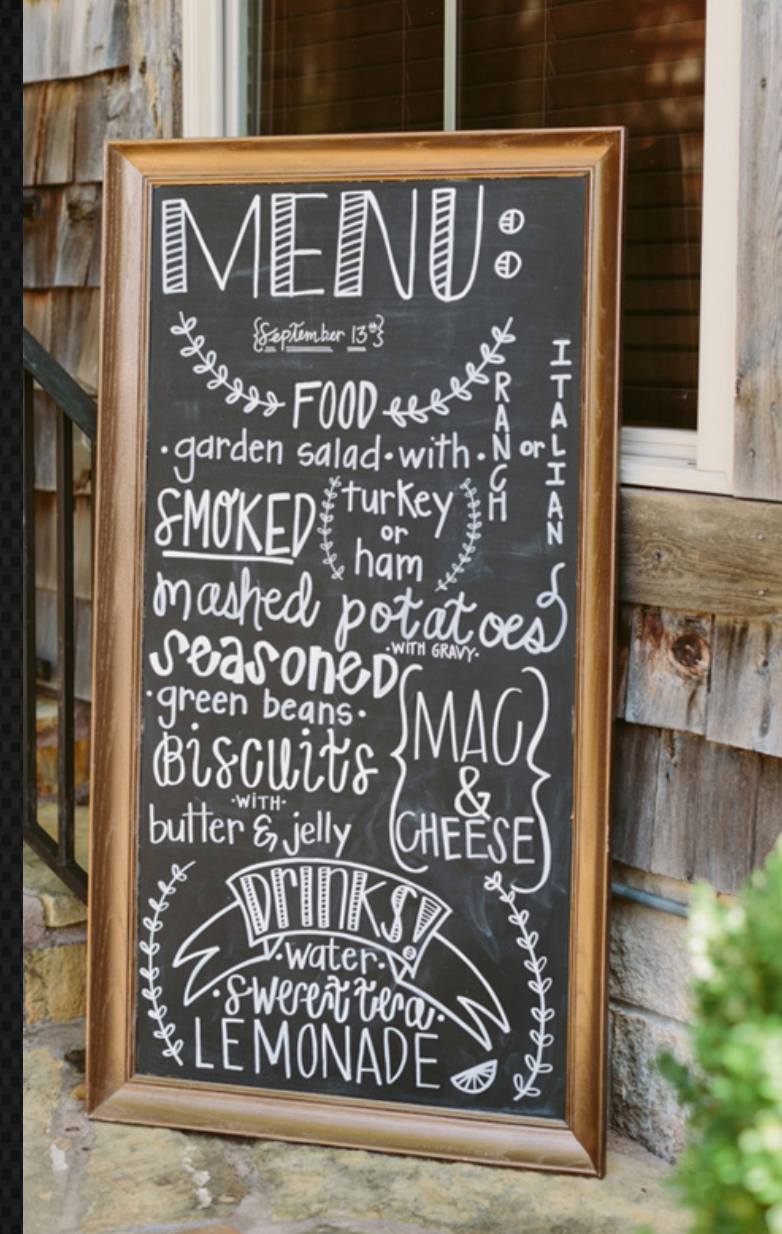 MENU:
{September 13th}
FOOD
·garden salad·with·RANCH or ITALIAN
SMOKED turkey
or
ham
mashed potatoes
·WITH GRAVY·
seasoned
·green beans·
BiSCuits
·WITH·
butter & jelly
{MAC
&
CHEESE}
DRINKS!
·water·
·sweet tea·
LEMONADE